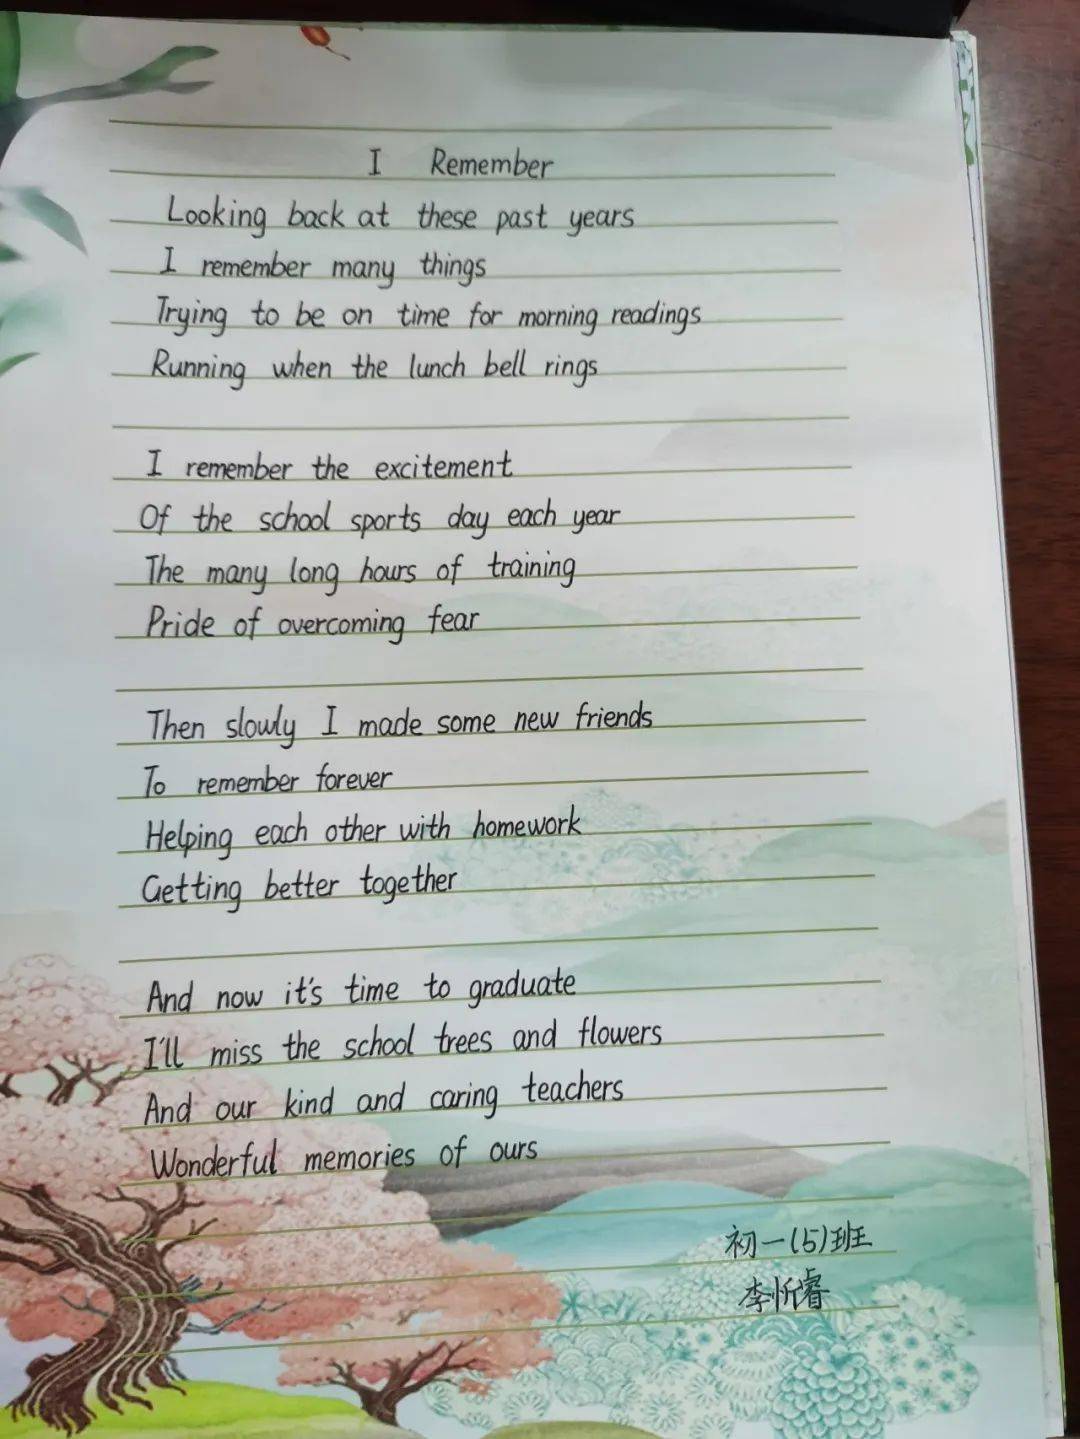 I Remember
Looking back at these past years
I remember many things
Trying to be on time for morning readings
Running when the lunch bell rings
I remember the excitement
Of the school sports day each year
The many long hours of training
Pride of overcoming fear
Then slowly I made some new friends
To remember forever
Helping each other with homework
Getting better together
And now it's time to graduate
I'll miss the school trees and flowers
And our kind and caring teachers
Wonderful memories of ours
初一(5)班
李忻睿